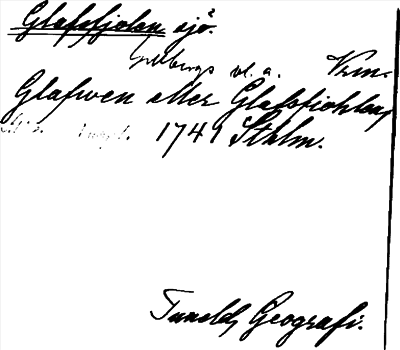 Glafsfjolen sjö.
Gillbergs vl. a. Vrm.
Glafwen eller Glafsfiohlen,
1741 Sthlm.
Tunelds Geografi.